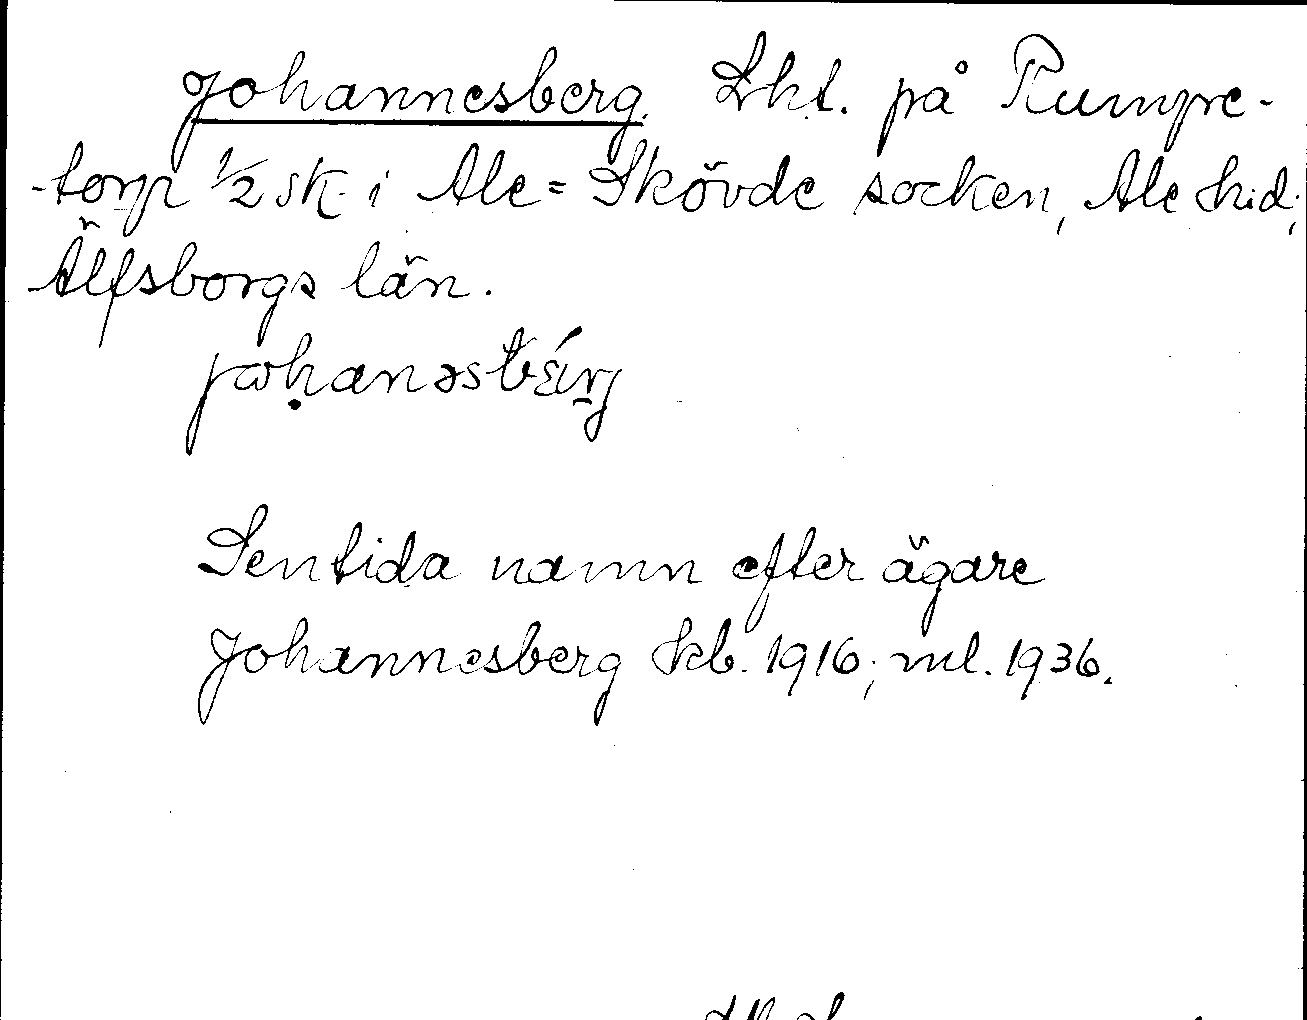 Johannesberg. Lht. på Rumpe-
-torp 1/2 sk. i Ale=Skövde socken, Ale hd.;
Älfsborgs län.
Sentida namn efter ägare
Johannesberg kb. 1916; ml. 1936.